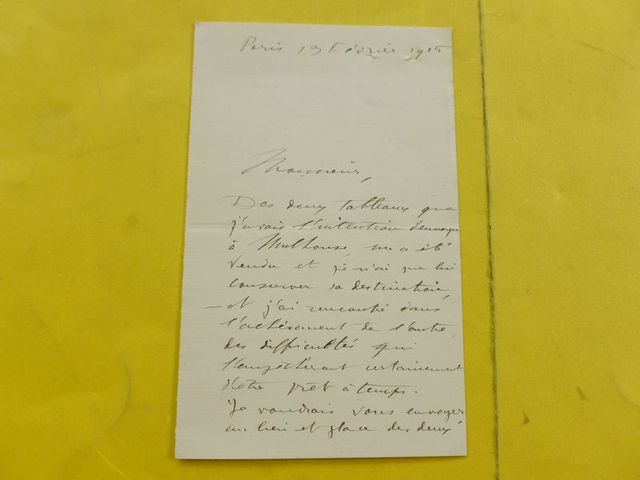 Paris 13 Février
Monsieur,
Des deux tableaux que
j'avais l'intention d'envoyer
à Mulhouse un a été
vendu et je n'ai pu lui
conserver sa destination,
et j'ai rencontré dans
l'achèvement de l'autre
des difficultés qui
l'empêcheront certainement
d'être prêt à temps.
Je voudrais vous envoyer
au lieu et place des deux